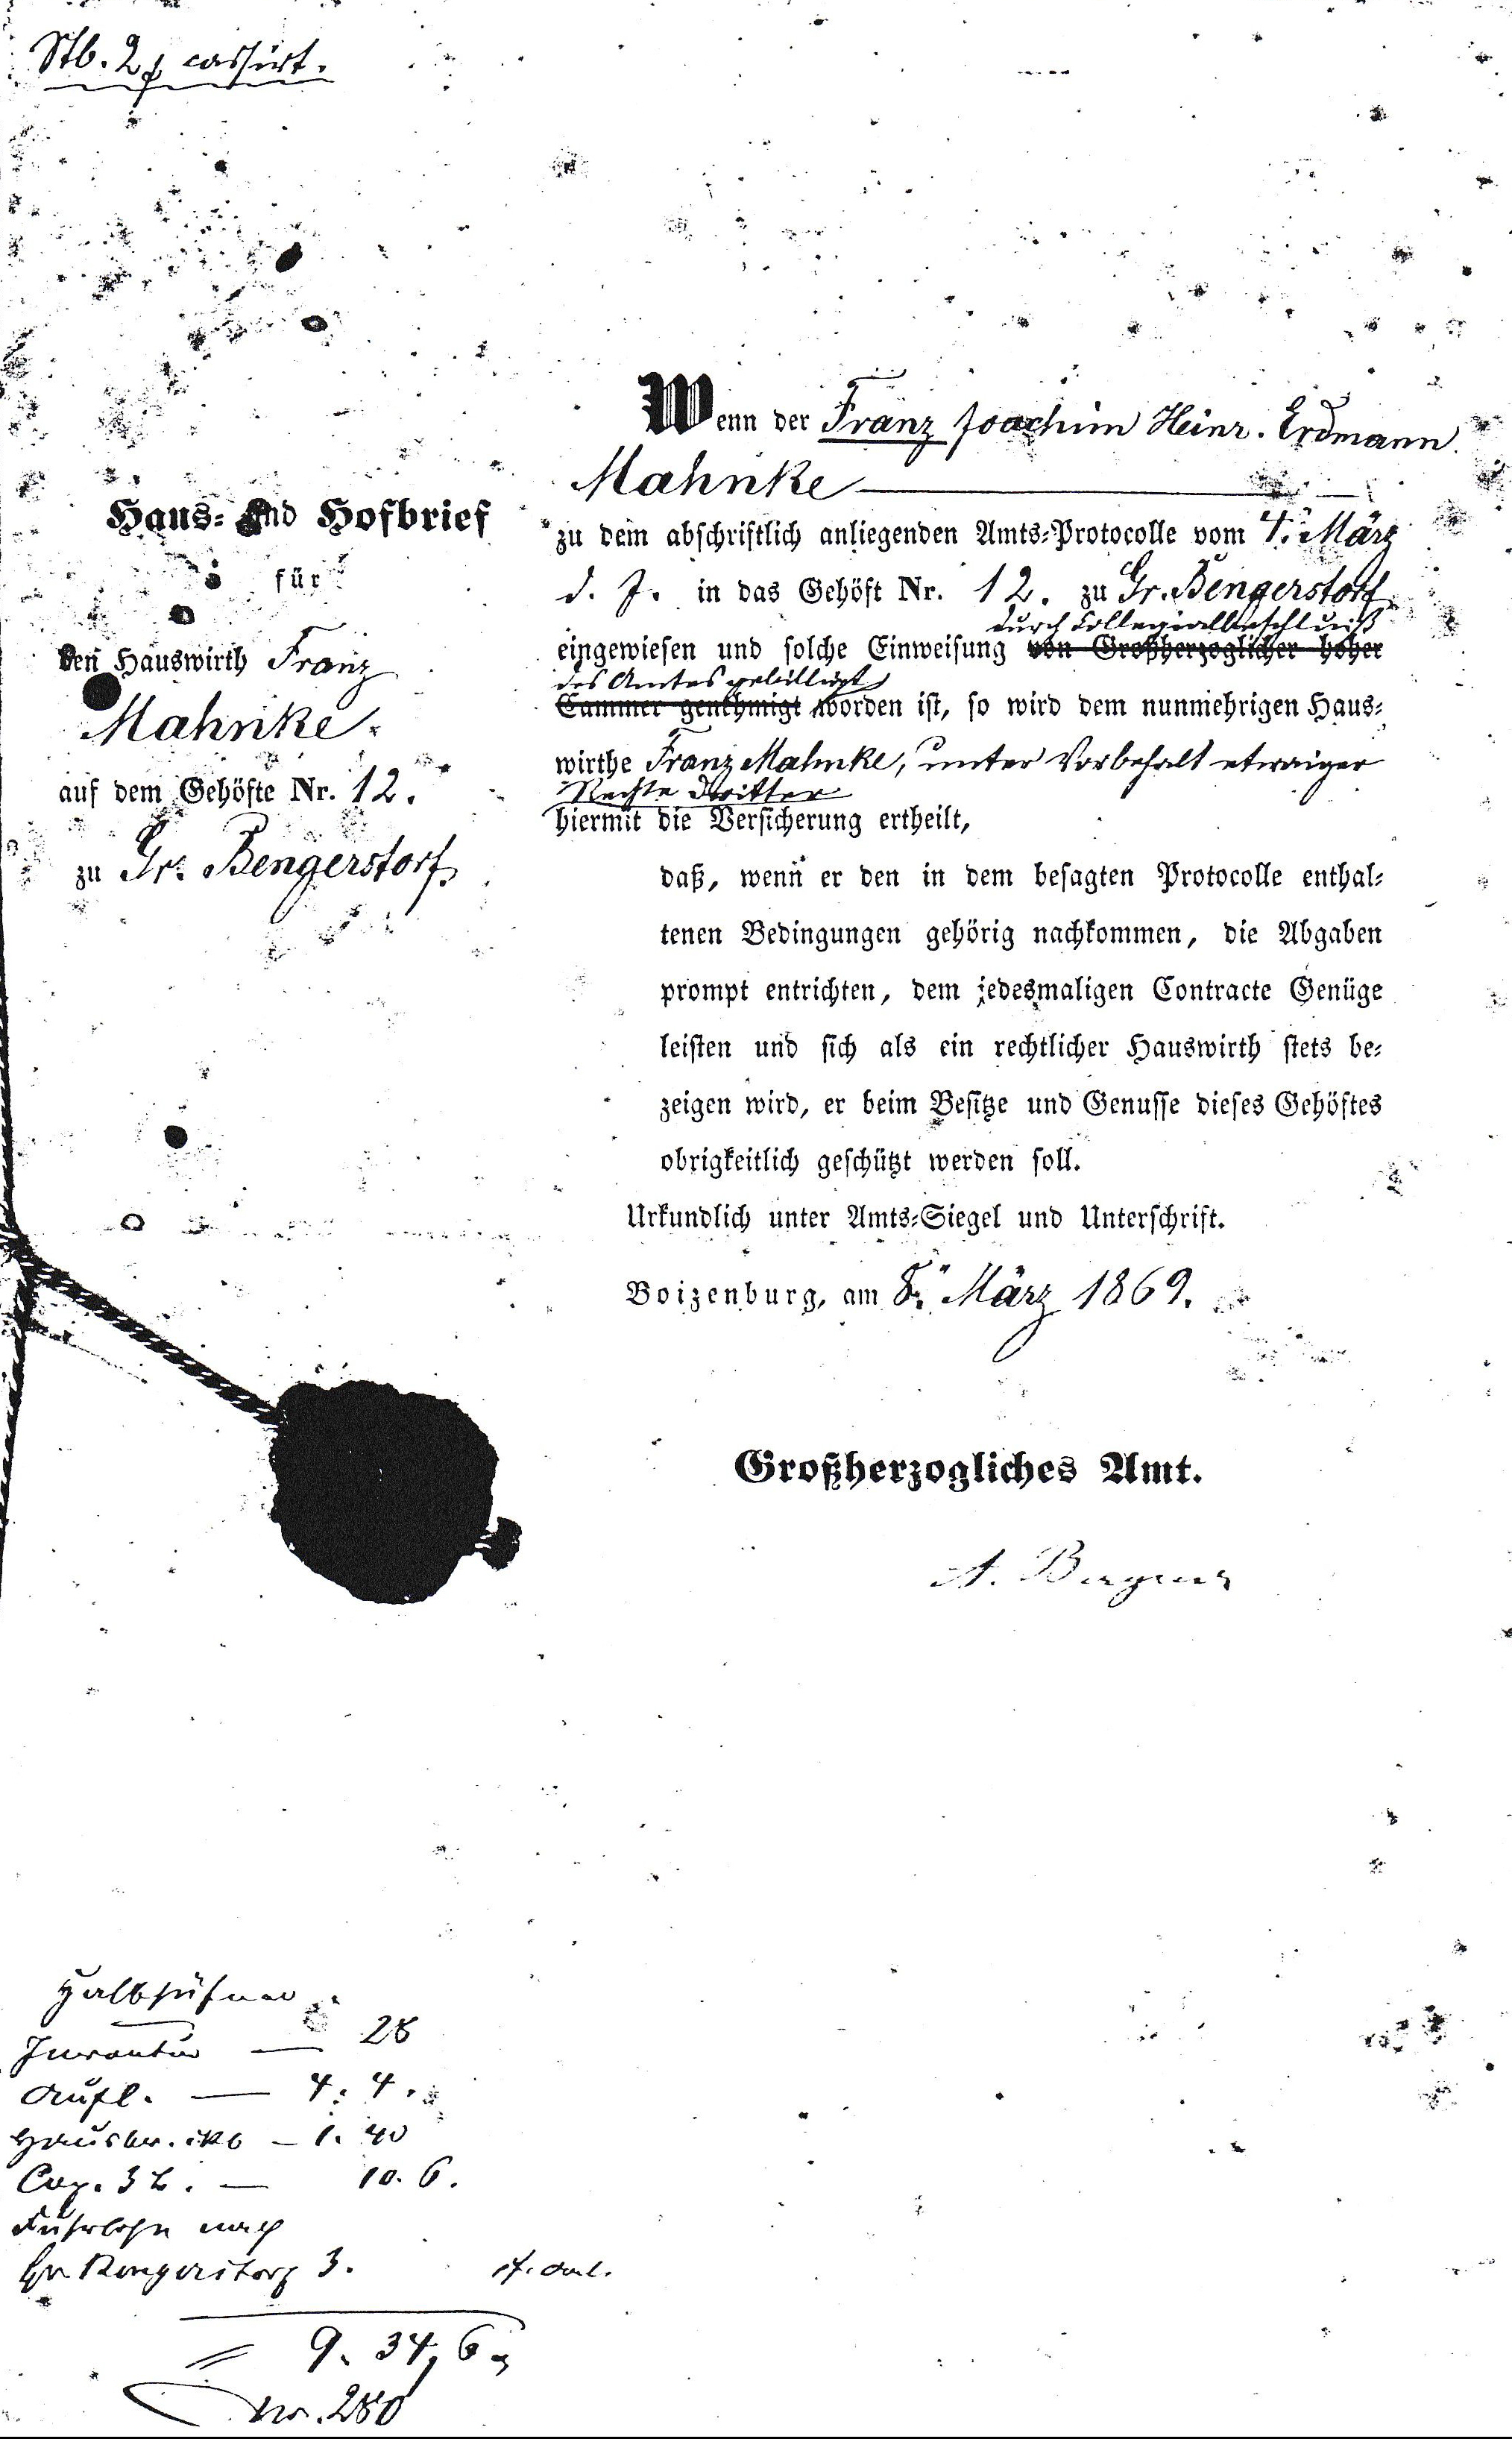 Stb. 2 ß cassirt.
Haus- und Hofbrief
für
den Hauswirth Franz
Mahnke
auf dem Gehöfte Nr. 12.
zu Gr. Bengerstorf
Wenn der Franz Joachim Heinr. Erdmann
Mahnke
zu dem abschriftlich anliegenden Amts-Protocolle vom 4. März
d. J. in das Gehöft Nr. 12. zu Gr. Bengerstorf
durch Collegialbeschluß
eingewiesen und solche Einweisung von Großherzoglicher hoher
des Amtes gebilligt
Cammer genehmigt worden ist, so wird dem nunmehrigen Haus-
wirthe Franz Mahnke, unter Vorbehalt etwaiger
Rechte Dritter
hiermit die Versicherung ertheilt,
daß, wenn er den in dem besagten Protocolle enthal-
tenen Bedingungen gehörig nachkommen, die Abgaben
prompt entrichten, dem jedesmaligen Contracte Genüge
leisten und sich als ein rechtlicher Hauswirth stets be-
zeigen wird, er beim Besitze und Genusse dieses Gehöftes
obrigkeitlich geschützt werden soll.
Urkundlich unter Amts-Siegel und Unterschrift.
Boizenburg, am 8. März 1869.
Großherzogliches Amt.
Halbhüfner
28
Aufl. — 4. 4.
1. 40
Cop. 3 — 10. 6.
Fuhrlohn nach
Gr. Bengerstorf 3.
= 9. 34, 6
no. 280